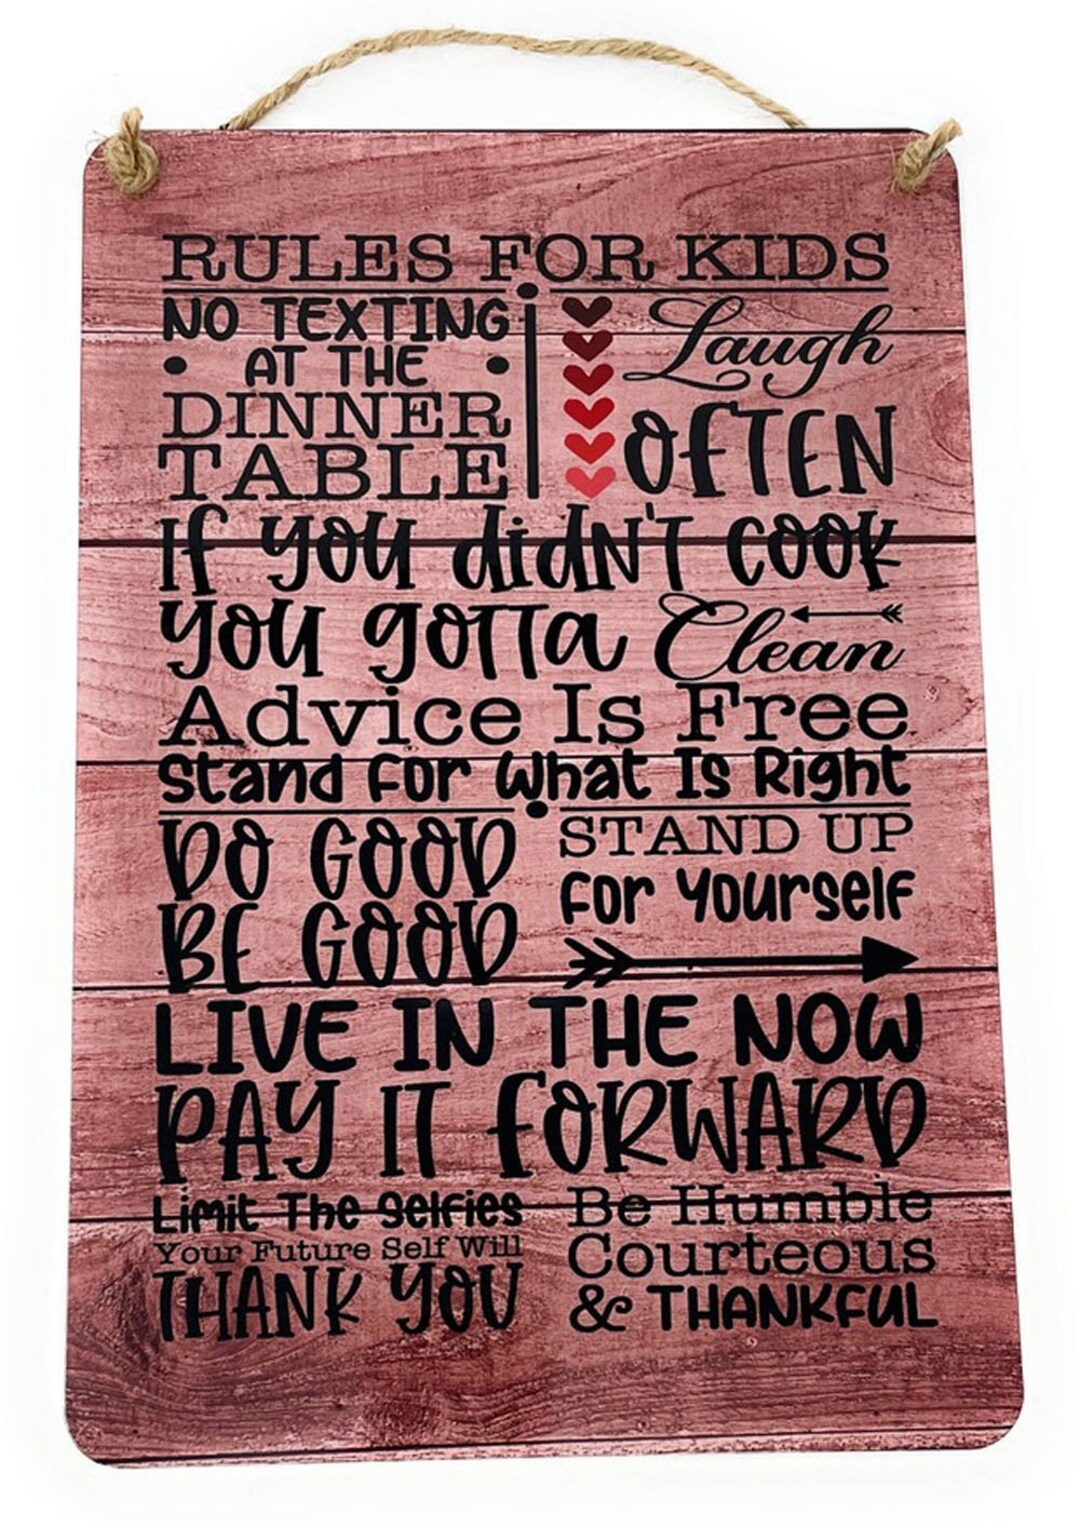 RULES FOR KIDS
NO TEXTING
AT THE
DINNER
TABLE
Laugh
OFTEN
If you didn't cook
you gotta Clean
Advice Is Free
Stand for What Is Right
DO GOOD
BE GOOD
STAND UP
for yourself
LIVE IN THE NOW
PAY IT FORWARD
Limit The Selfies
Your Future Self Will
THANK YOU
Be Humble
Courteous
& THANKFUL